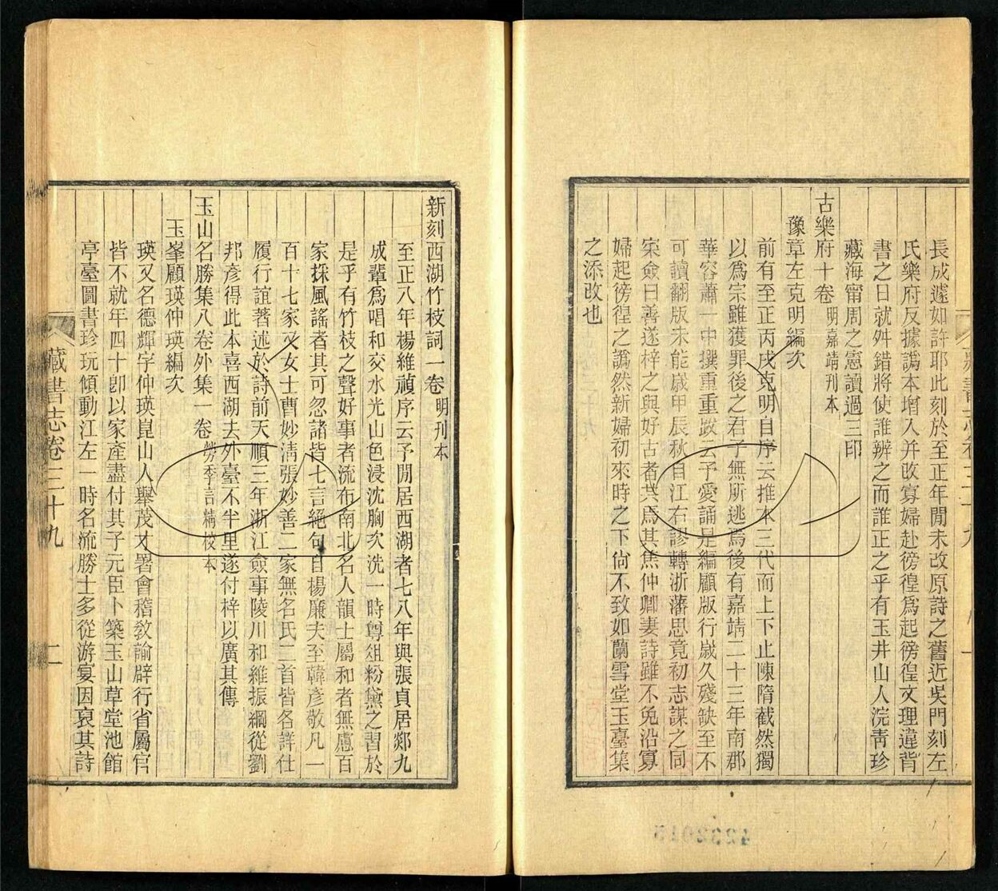 長成遽如許耶此刻於至正年閒未改原詩之舊近吳門刻左
氏樂府反據譌本增入幷改寡婦赴徬徨爲起徬徨文理違背
書之日就舛錯將使誰辨之而誰正之乎有玉井山人浣靑珍
藏海甯周之憲讀過三印
古樂府十卷明嘉靖刊本
豫章左克明編次
前有至正丙戌克明自序云推本三代而上下止陳隋截然獨
以爲宗雖獲罪後之君子無所逃焉後有嘉靖二十三年南郡
華容蕭一中撰重重跋云予愛誦是編顧版行嵗久殘缺至不
可讀翻版未能嵗甲辰秋自江右謬轉浙藩思竟初志謀之同
寀僉曰善遂梓之與好古者共焉其焦仲卿妻詩雖不免沿寡
婦起徬徨之譌然新婦初來時之下尙不致如蘭雪堂玉臺集
之添改也
新刻西湖竹枝詞一卷明刊本
至正八年楊維禎序云予閒居西湖者七八年與張貞居郯九
成輩爲唱和交水光山色浸沈胸次洗一時尊俎粉黛之習於
是乎有竹枝之聲好事者流布南北名人韻士屬和者無慮百
家採風謠者其可忽諸皆七言絕句自楊廉夫至韓彥敬凡一
百十七家又女士曹妙淸張妙善二家無名氏二首皆名詳仕
履行誼著述於詩前天順三年浙江僉事陵川和維振綱從劉
邦彥得此本喜西湖去外臺不半里遂付梓以廣其傳
玉山名勝集八卷外集一卷勞季言精校本
玉峯顧瑛仲瑛編次
瑛又名德輝字仲瑛崑山人舉茂才署會稽敎諭辟行省屬官
皆不就年四十卽以家產盡付其子元臣卜築玉山草堂池館
亭臺圖書珍玩傾動江左一時名流勝士多從游宴因裒其詩
藏書志卷三十九
二
4232015